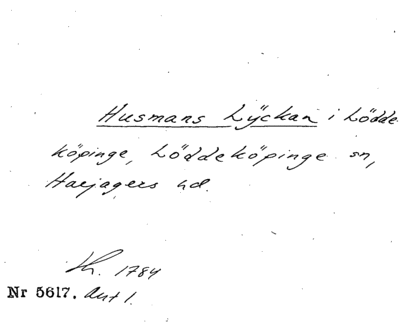 Husmans Lÿckan i Lödde-
köpinge, Löddeköpinge sn,
Harjagers hd.
Kh. 1784
Nr 5617. Avt 1.